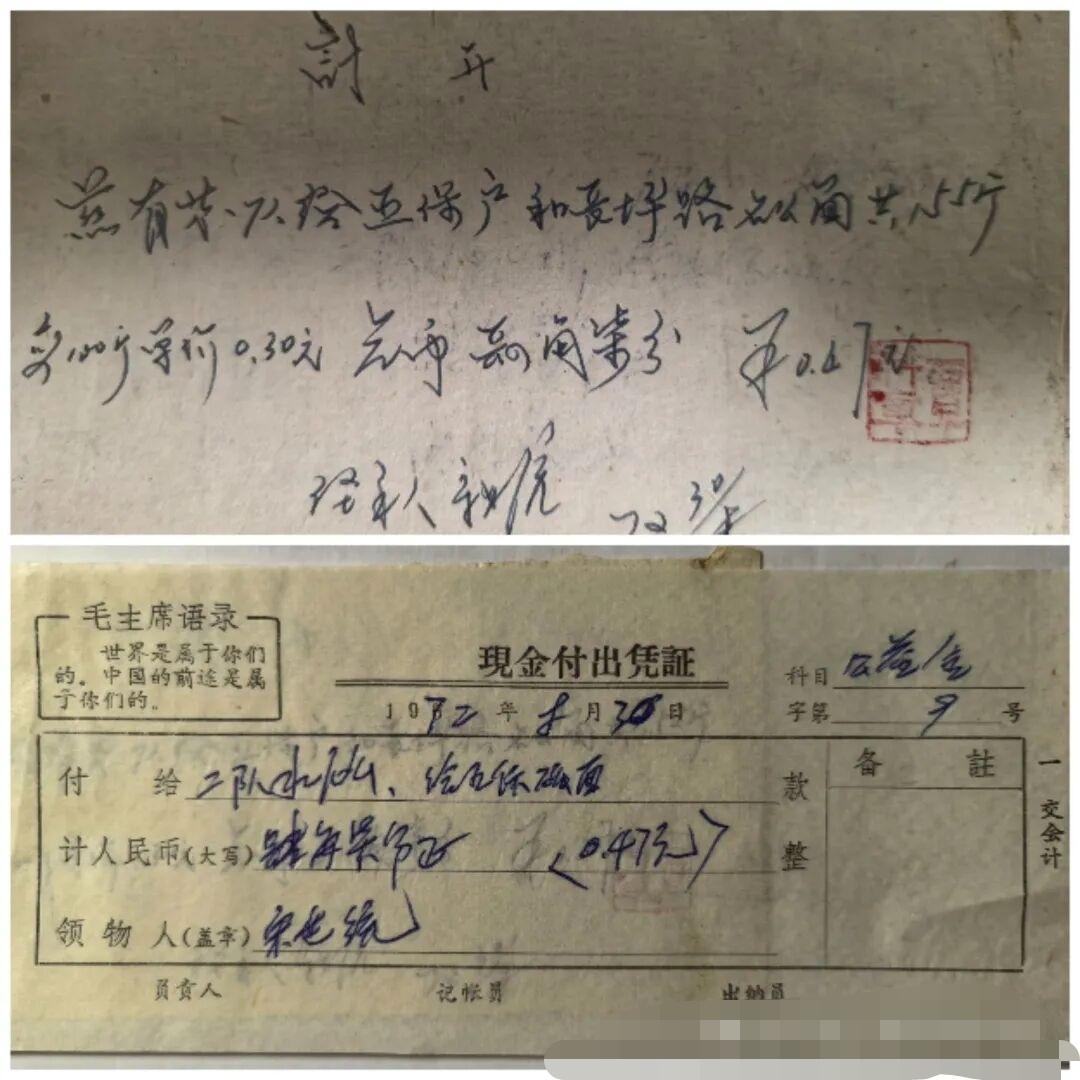 計开
兹有苂、队给五保户和長坪路砍面共155斤
每100斤单价0.30元 人币 肆角柒分 0.47元
经手人
72 30/5
毛主席语录
世界是属于你们
的。中国的前途是属
于你们的。
現金付出凭証
科目 公益金
1972年 月30日
字第 9 号
付给 二队水 、给五保 面 款
备註
计人民币(大写) 肆角柒分正 (0.47元) 整
领物人(盖章) 宋
一交会计
負責人 记帐員 出纳員